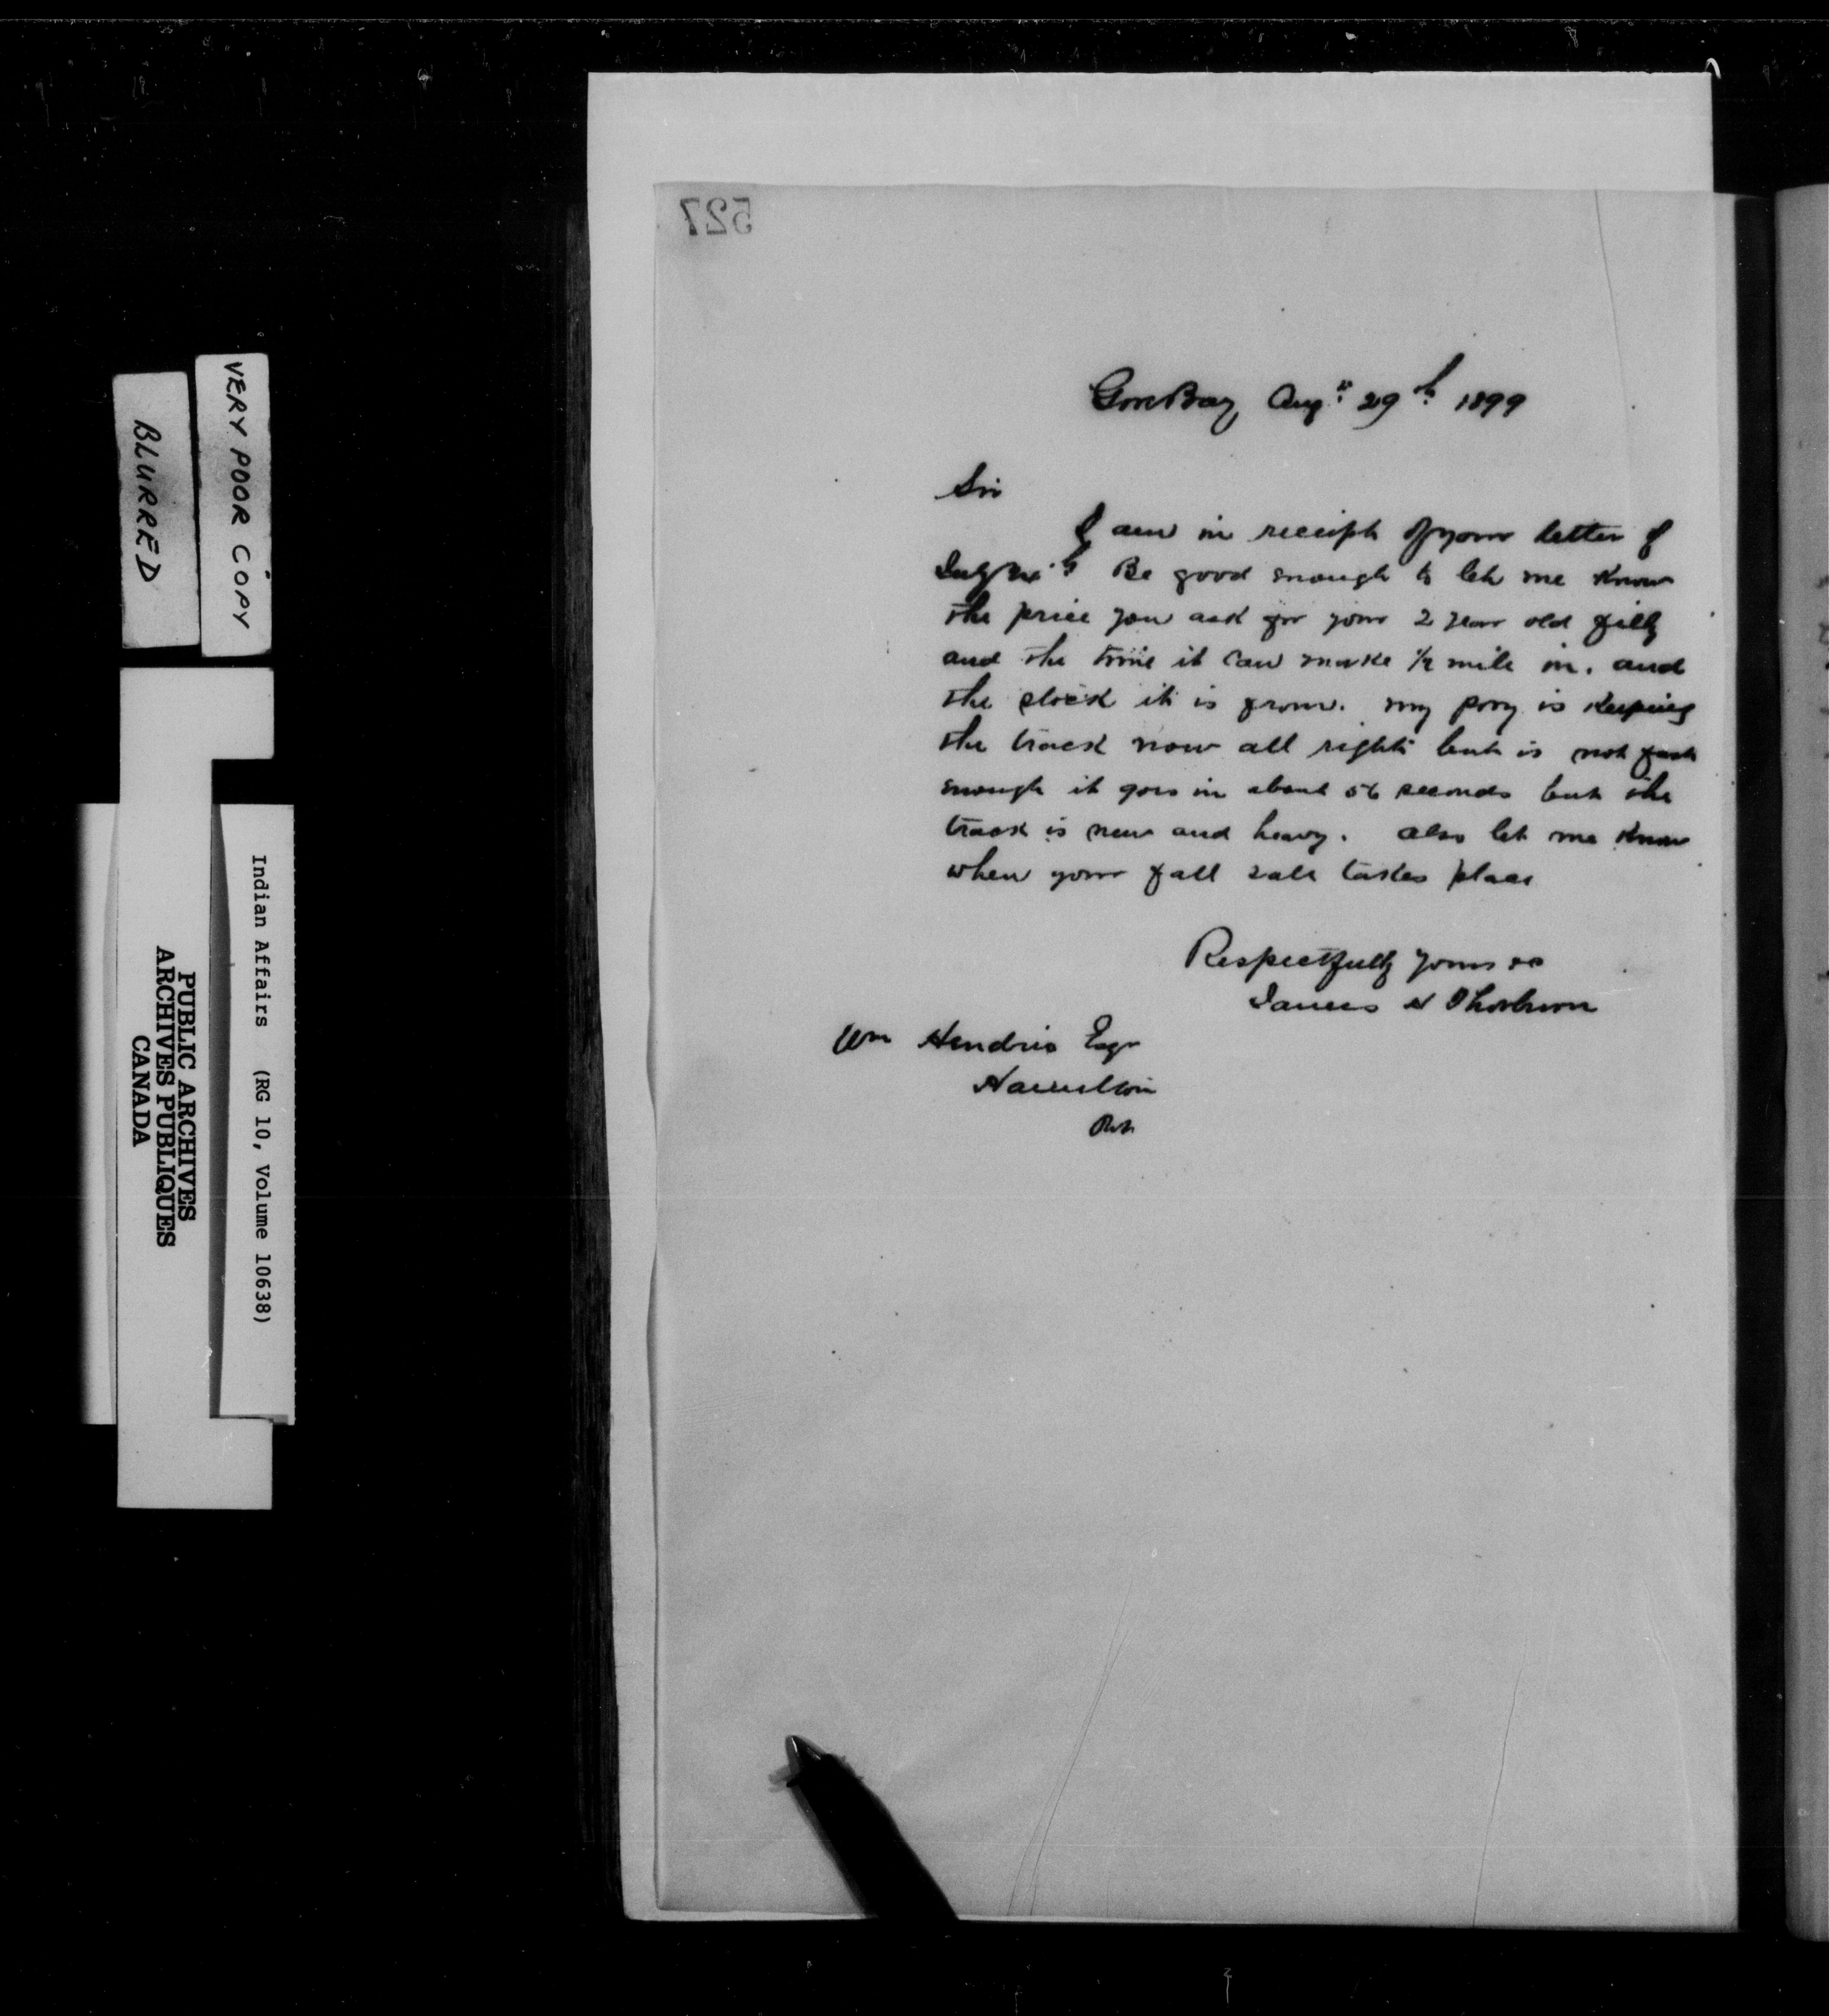 527
VERY POOR COPY
BLURRED
Indian Affairs (RG 10, Volume 10638)
PUBLIC ARCHIVES
ARCHIVES PUBLIQUES
CANADA
Gore Bay Augt 29th 1899
Sir
I am in receipt of your letter of
July Be good enough to let me know
the price you ask for your 2 year old filly
and the time it can make 1/2 mile in. and
the stock it is from. my pony is keeping
the track now all right but is not fast
enough it goes in about 56 seconds but the
track is new and heavy. also let me know
when your fall sale takes place
Respectfully yours
James H Thorburn
Wm Hendrie Esqr
Hamilton
Ont